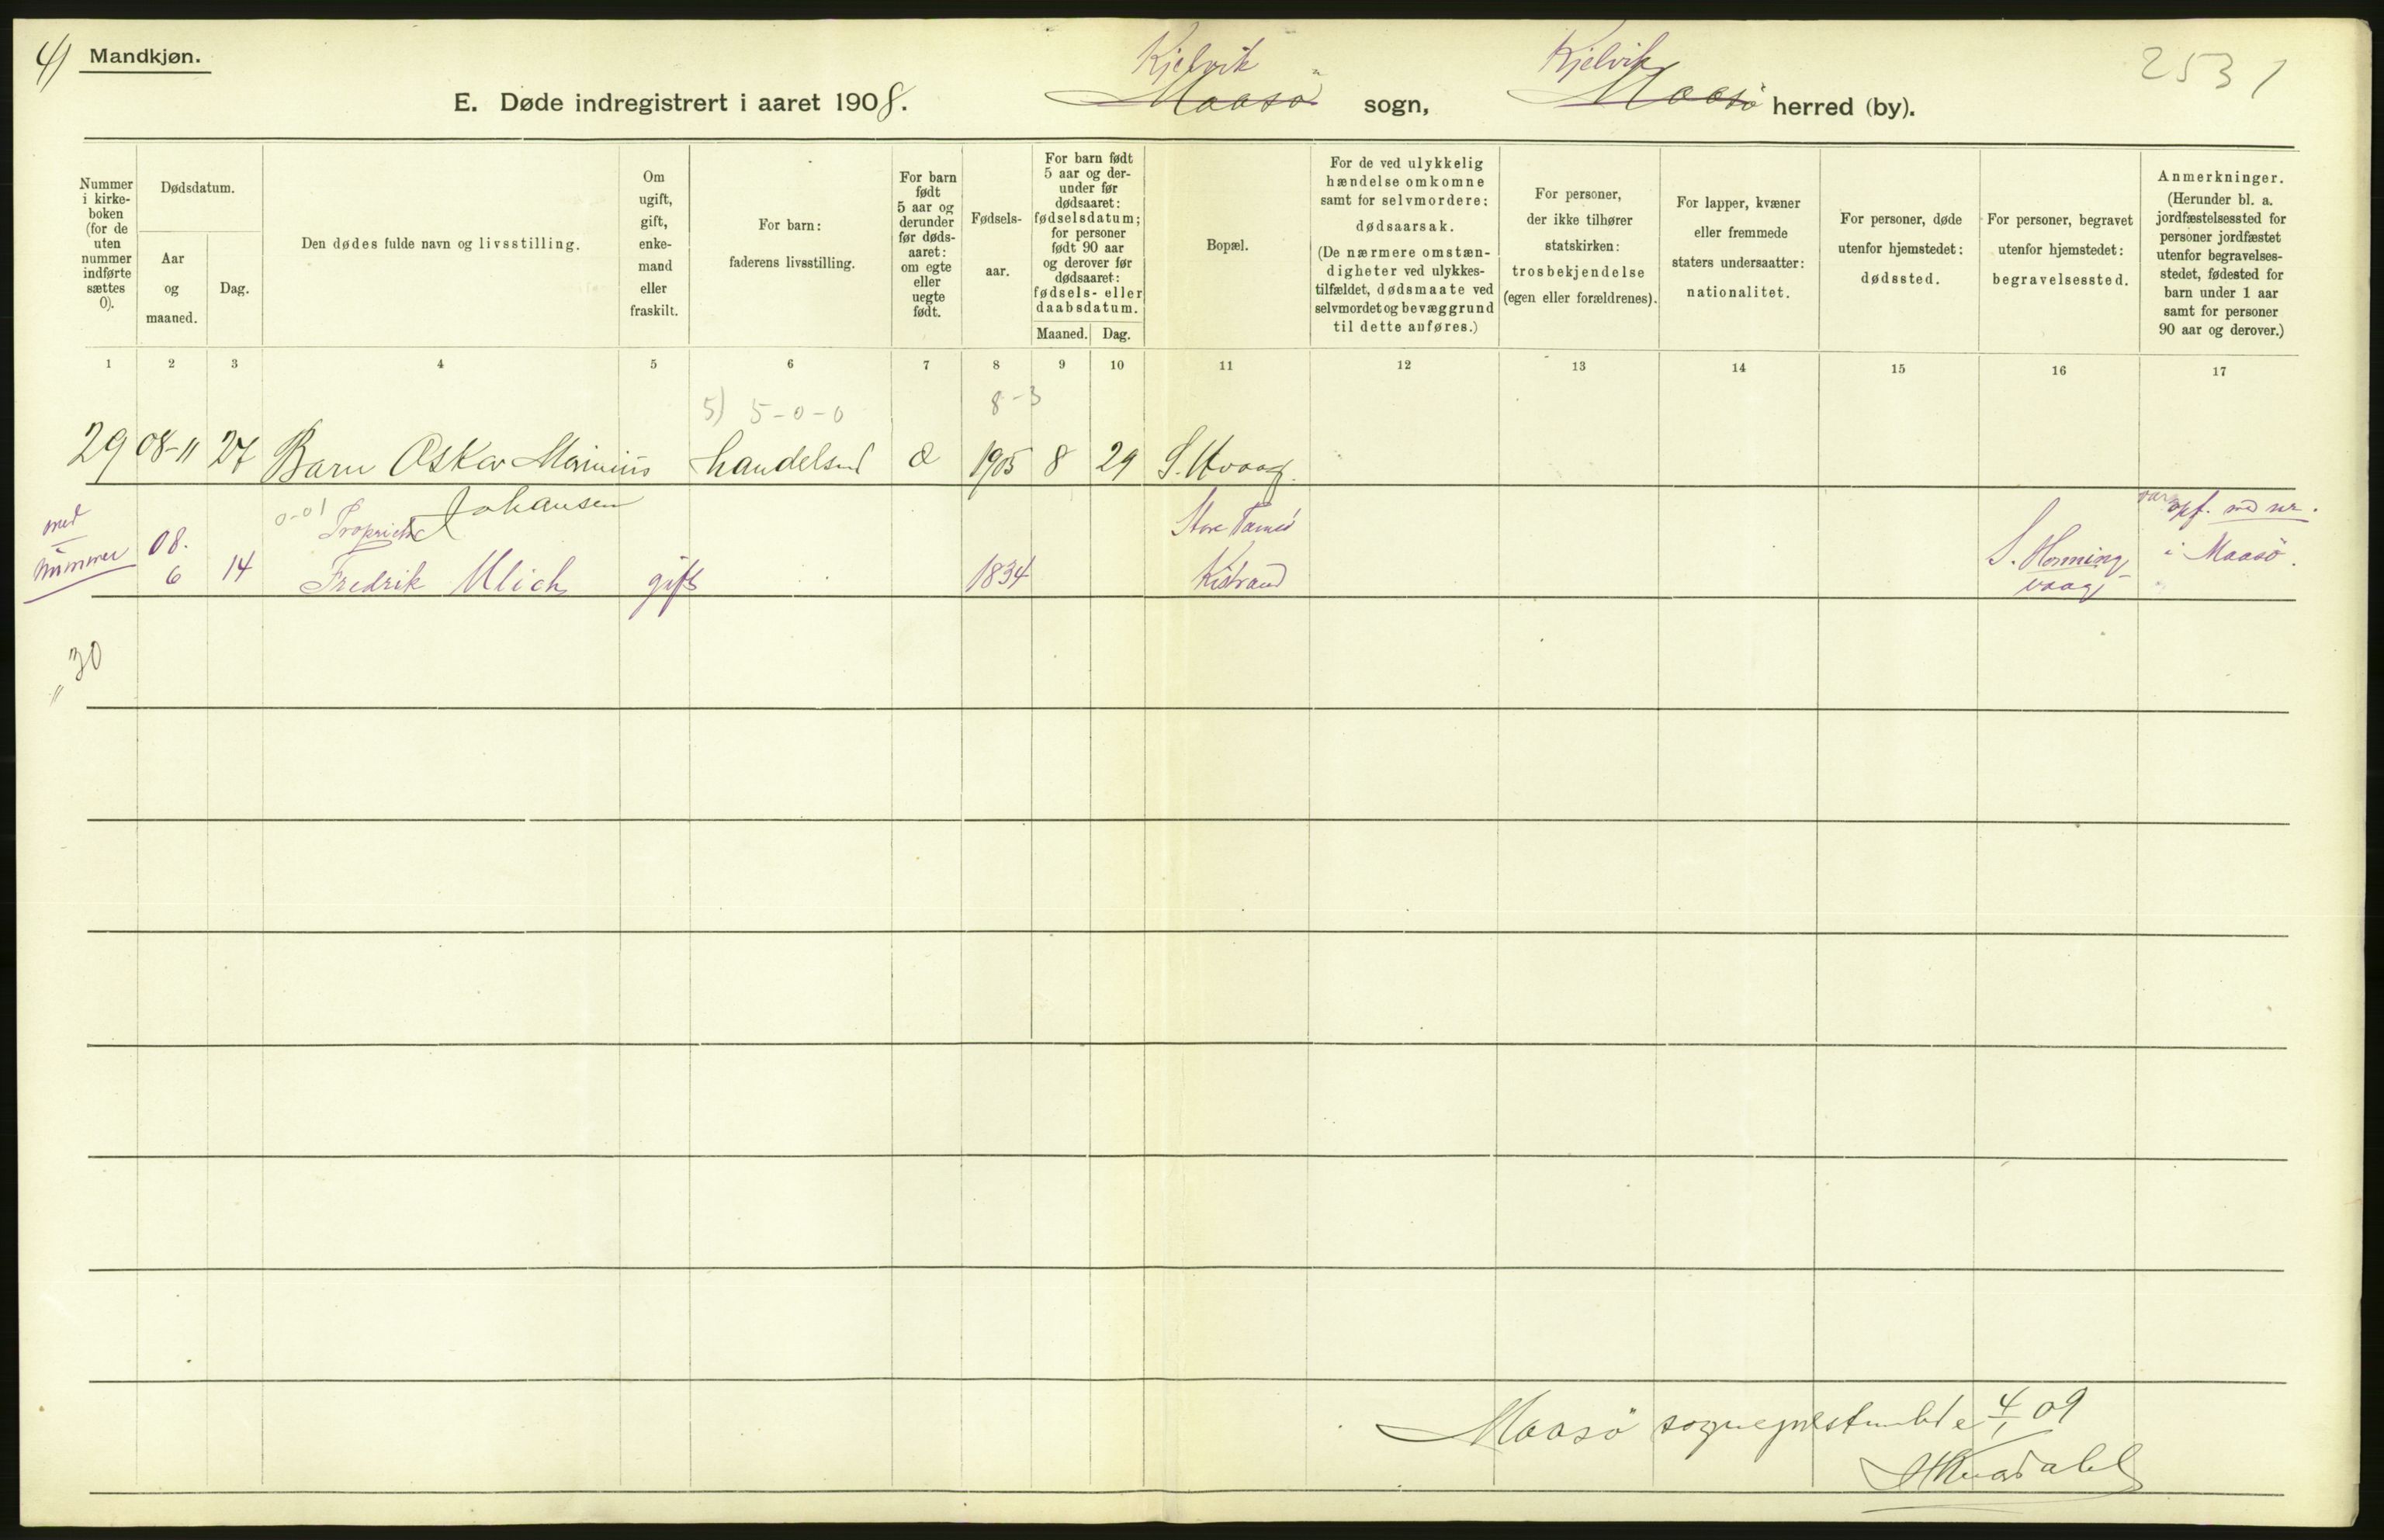 4) Mandkjøn.
Kjelvik Kjelvik 2531
E. Døde indregistrert i aaret 1908. Maasø sogn, Maasø herred (by).
Nummer i kirke-boken (for de uten nummer indførte sættes 0).
Dødsdatum.
Aar og maaned.
Dag.
Den dødes fulde navn og livsstilling.
Om ugift, gift, enke-mand eller fraskilt.
For barn: faderens livsstilling.
For barn født 5 aar og derunder før døds-aaret: om egte eller uegte født.
Fødsels-aar.
For barn født 5 aar og der-under før dødsaaret: fødselsdatum; for personer født 90 aar og derover før dødsaaret: fødsels- eller daabsdatum.
Maaned. Dag.
Bopæl.
For de ved ulykkelig hændelse omkomne samt for selvmordere: dødsaarsak. (De nærmere omstæn-digheter ved ulykkes-tilfældet, dødsmaate ved selvmordet og bevæggrund til dette anføres.)
For personer, der ikke tilhører statskirken: trosbekjendelse (egen eller forældrenes).
For lapper, kvæner eller fremmede staters undersaatter: nationalitet.
For personer, døde utenfor hjemstedet: dødssted.
For personer, begravet utenfor hjemstedet: begravelsessted.
Anmerkninger. (Herunder bl. a. jordfæstelsessted for personer jordfæstet utenfor begravelses-stedet, fødested for barn under 1 aar samt for personer 90 aar og derover.)
1 2 3 4 5 6 7 8 9 10 11 12 13 14 15 16 17
5) 5-0-0 8-3
29 08-11 27 Barn Oskar Marinius handelsm 1905 8 29
Johansen
0-01 Store Tamsø opf. med nr.
nummer 08. 6 14 Fredrik Ulich gift 1834 Kistrand S. Honning- i Maasø.
vaag
" 30
Maasø sogneprestembede 4/1 09